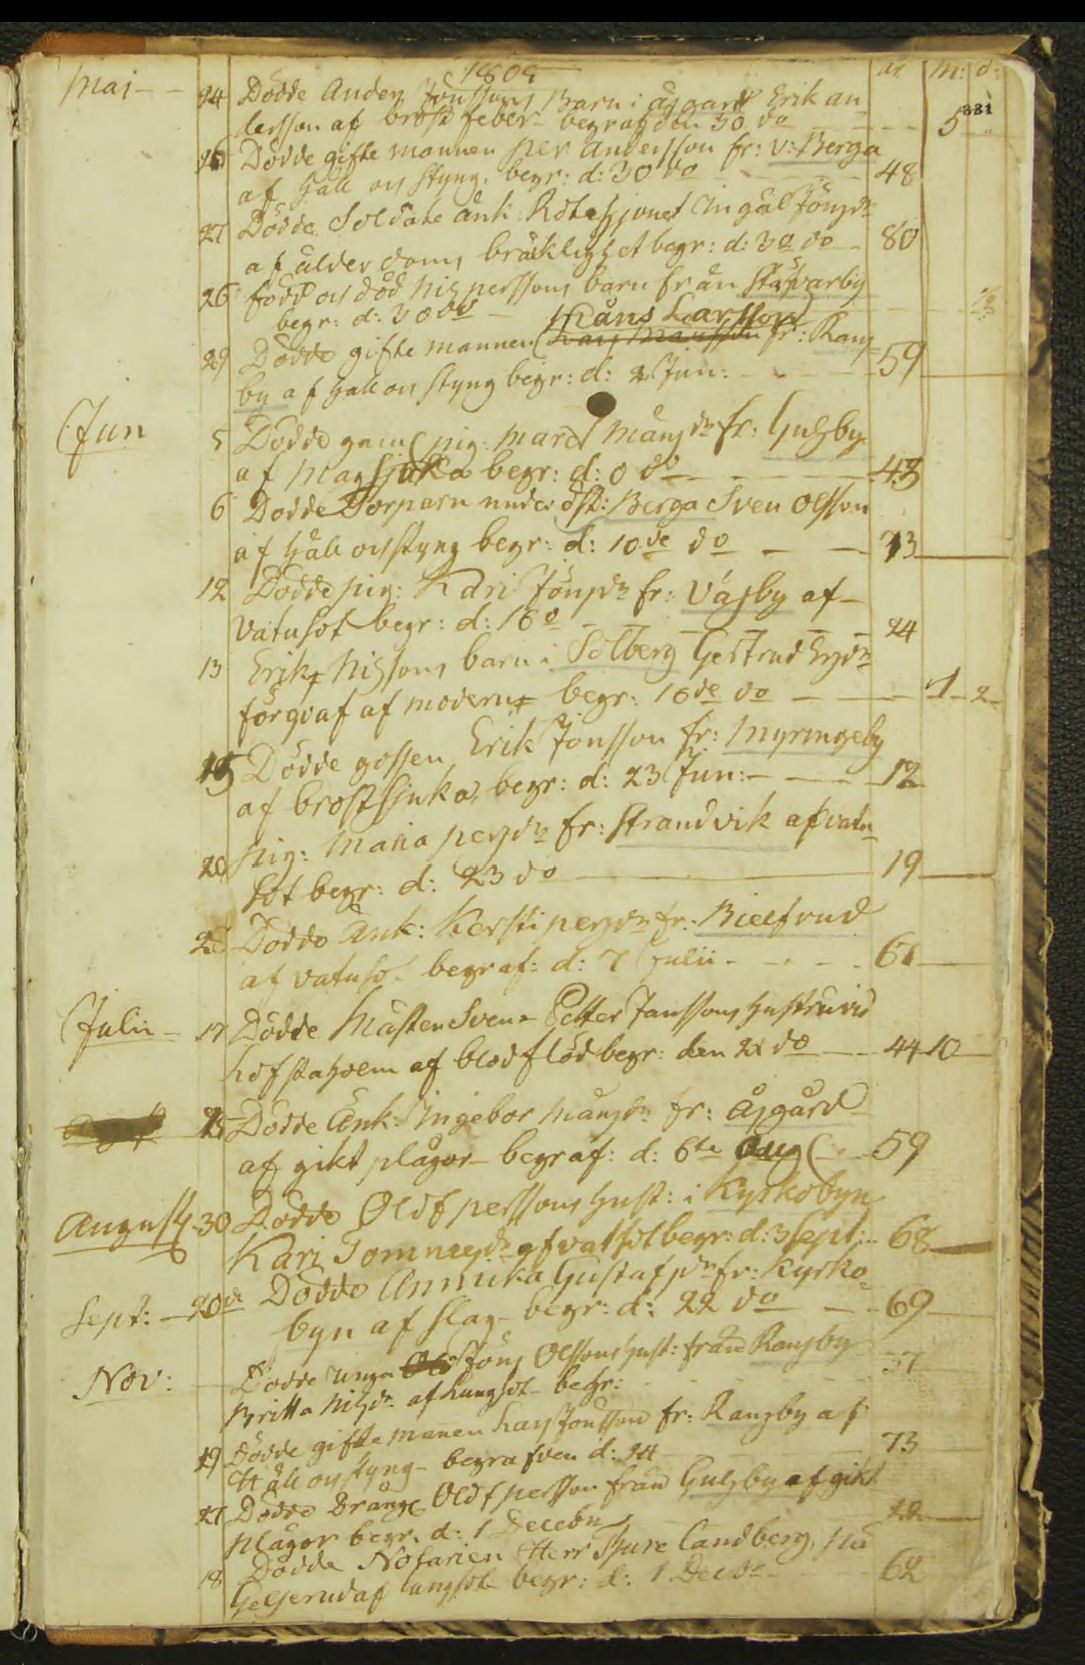 1809
år M: d:
331
Maj - - 24 Dödde Anders Jönssons Barn i åsgard Erik an
dersson af bröst feber begrafden 30 do 5
26 Dödde gifte mannen Per Andersson fr: v: Berga
af håll och styng. begr: d: 30 do 48
27 Dödde Soldate Änk: Jönsdr
af ålderdoms bräklighet begr: d: 30 do - 80
26 född och död Nils perssons barn från
begr: d: 30 do
Håns Larsson
29 Dödde gifte mannen fr: Rans
by af håll och styng begr: d: 2 Jun: 59
Jun 5 Dödde gam: pig: Mar Månsdr fr: Gulsby
af Magsjuka begr: d: 0 do 43
6 Dödde Torparn under öst: Berga Sven Olsson
af håll och styng begr: d: 10de do 33
12 Dödde pig: Kari Jönsdr fr: Våsby af
vatusot begr: d: 16 24
13 Erik Nilssons barn i Solberg Gertrud Ersdr
förqvaf af modern begr: 16de do 1 2
15 Dödde gossen Erik Jönsson fr: Myrmgeby
af brostsjuka, begr: d: 23 Jun: 12
20 pig: Maria persdr fr: Strandvik af vatu
sot begr: d: 23 do 19
Dödde Änk: Kersti persdr fr: Bielfrud
af vatuso- begraf: d: 7 Julii 61
Julii - 17 Dödde Mästersven Petter Janssons hustru vid
Löfstaholm af blodflöd begr: den 21 do 44 10
25 Dödde Änk: Ingebor Månsdr fr: Åsgård
af gikt plågor begraf: d: 6te Aug 59
Augusty 30 Dödde Olof perssons hust: i Kyrkobyn
Kari Tommesdr af vatsot begr: d: 3 Sept: 68
Sept: 20de Dödde Annika Gustafsdr fr: Kyrko=
byn af slag begr: d: 22 do 69
Nov: Dödde unga Jöns Olssons hust: från Ransby 37
Britta Nilsdr af lungsot begr:
19 Dödde gifte manen Lars Jönsson fr: Ransby af
Håll och styng begrafven d: 24 73
21 Dödde Dräng Olof persson från Gulsby af gikt
plågor begr. d: 1 Decebr 22
18 Dödde Notarien Herr Ture Candberg, på
Geijerud af lungsot begr: d: 1 Decbr 62